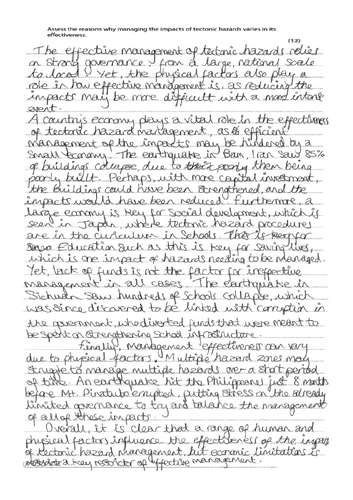 Assess the reasons why managing the impacts of tectonic hazards varies in its
effectiveness.
(12)
The effective management of tectonic hazards relies
on strong governance, from a large, national scale
to local. Yet, the physical factors also play a
role in how effective management is, as reducing the
impacts may be more difficult with a more intense
event.
A country's economy plays a vital role in the effectiveness
of tectonic hazard management, as efficient
management of the impacts may be hindered by a
small economy. The earthquake in Bam, Iran saw 85%
of buildings collapse, due to their poorly them being
poorly built. Perhaps, with more capital investment,
the buildings could have been strengthened, and the
impacts would have been reduced. Furthermore, a
large economy is key for social development, which is
seen in Japan, where tectonic hazard procedures
are in the curriculum in schools. This is key for
Education such as this is key for saving lives,
which is one impact of hazards needing to be managed.
Yet, lack of funds is not the factor for
management in all cases. The earthquake in
Sichuan saw hundreds of schools collapse, which
was since discovered to be linked with corruption in
the government, who diverted funds that were meant to
be spent on strengthening school infrastructure.
Finally, management effectiveness can vary
due to physical factors. Multiple hazard zones may
struggle to manage multiple hazards over a short period
of time. An earthquake hit the just 8 month
before Mt. Pinatubo erupted, putting stress on the already
limited governance to try and balance the management
of all of these impacts.
Overall, it is clear that a range of human and
physical factors influence the effectiveness of the
of tectonic hazard management, but economic limitations is
a key restrictor of effective management.